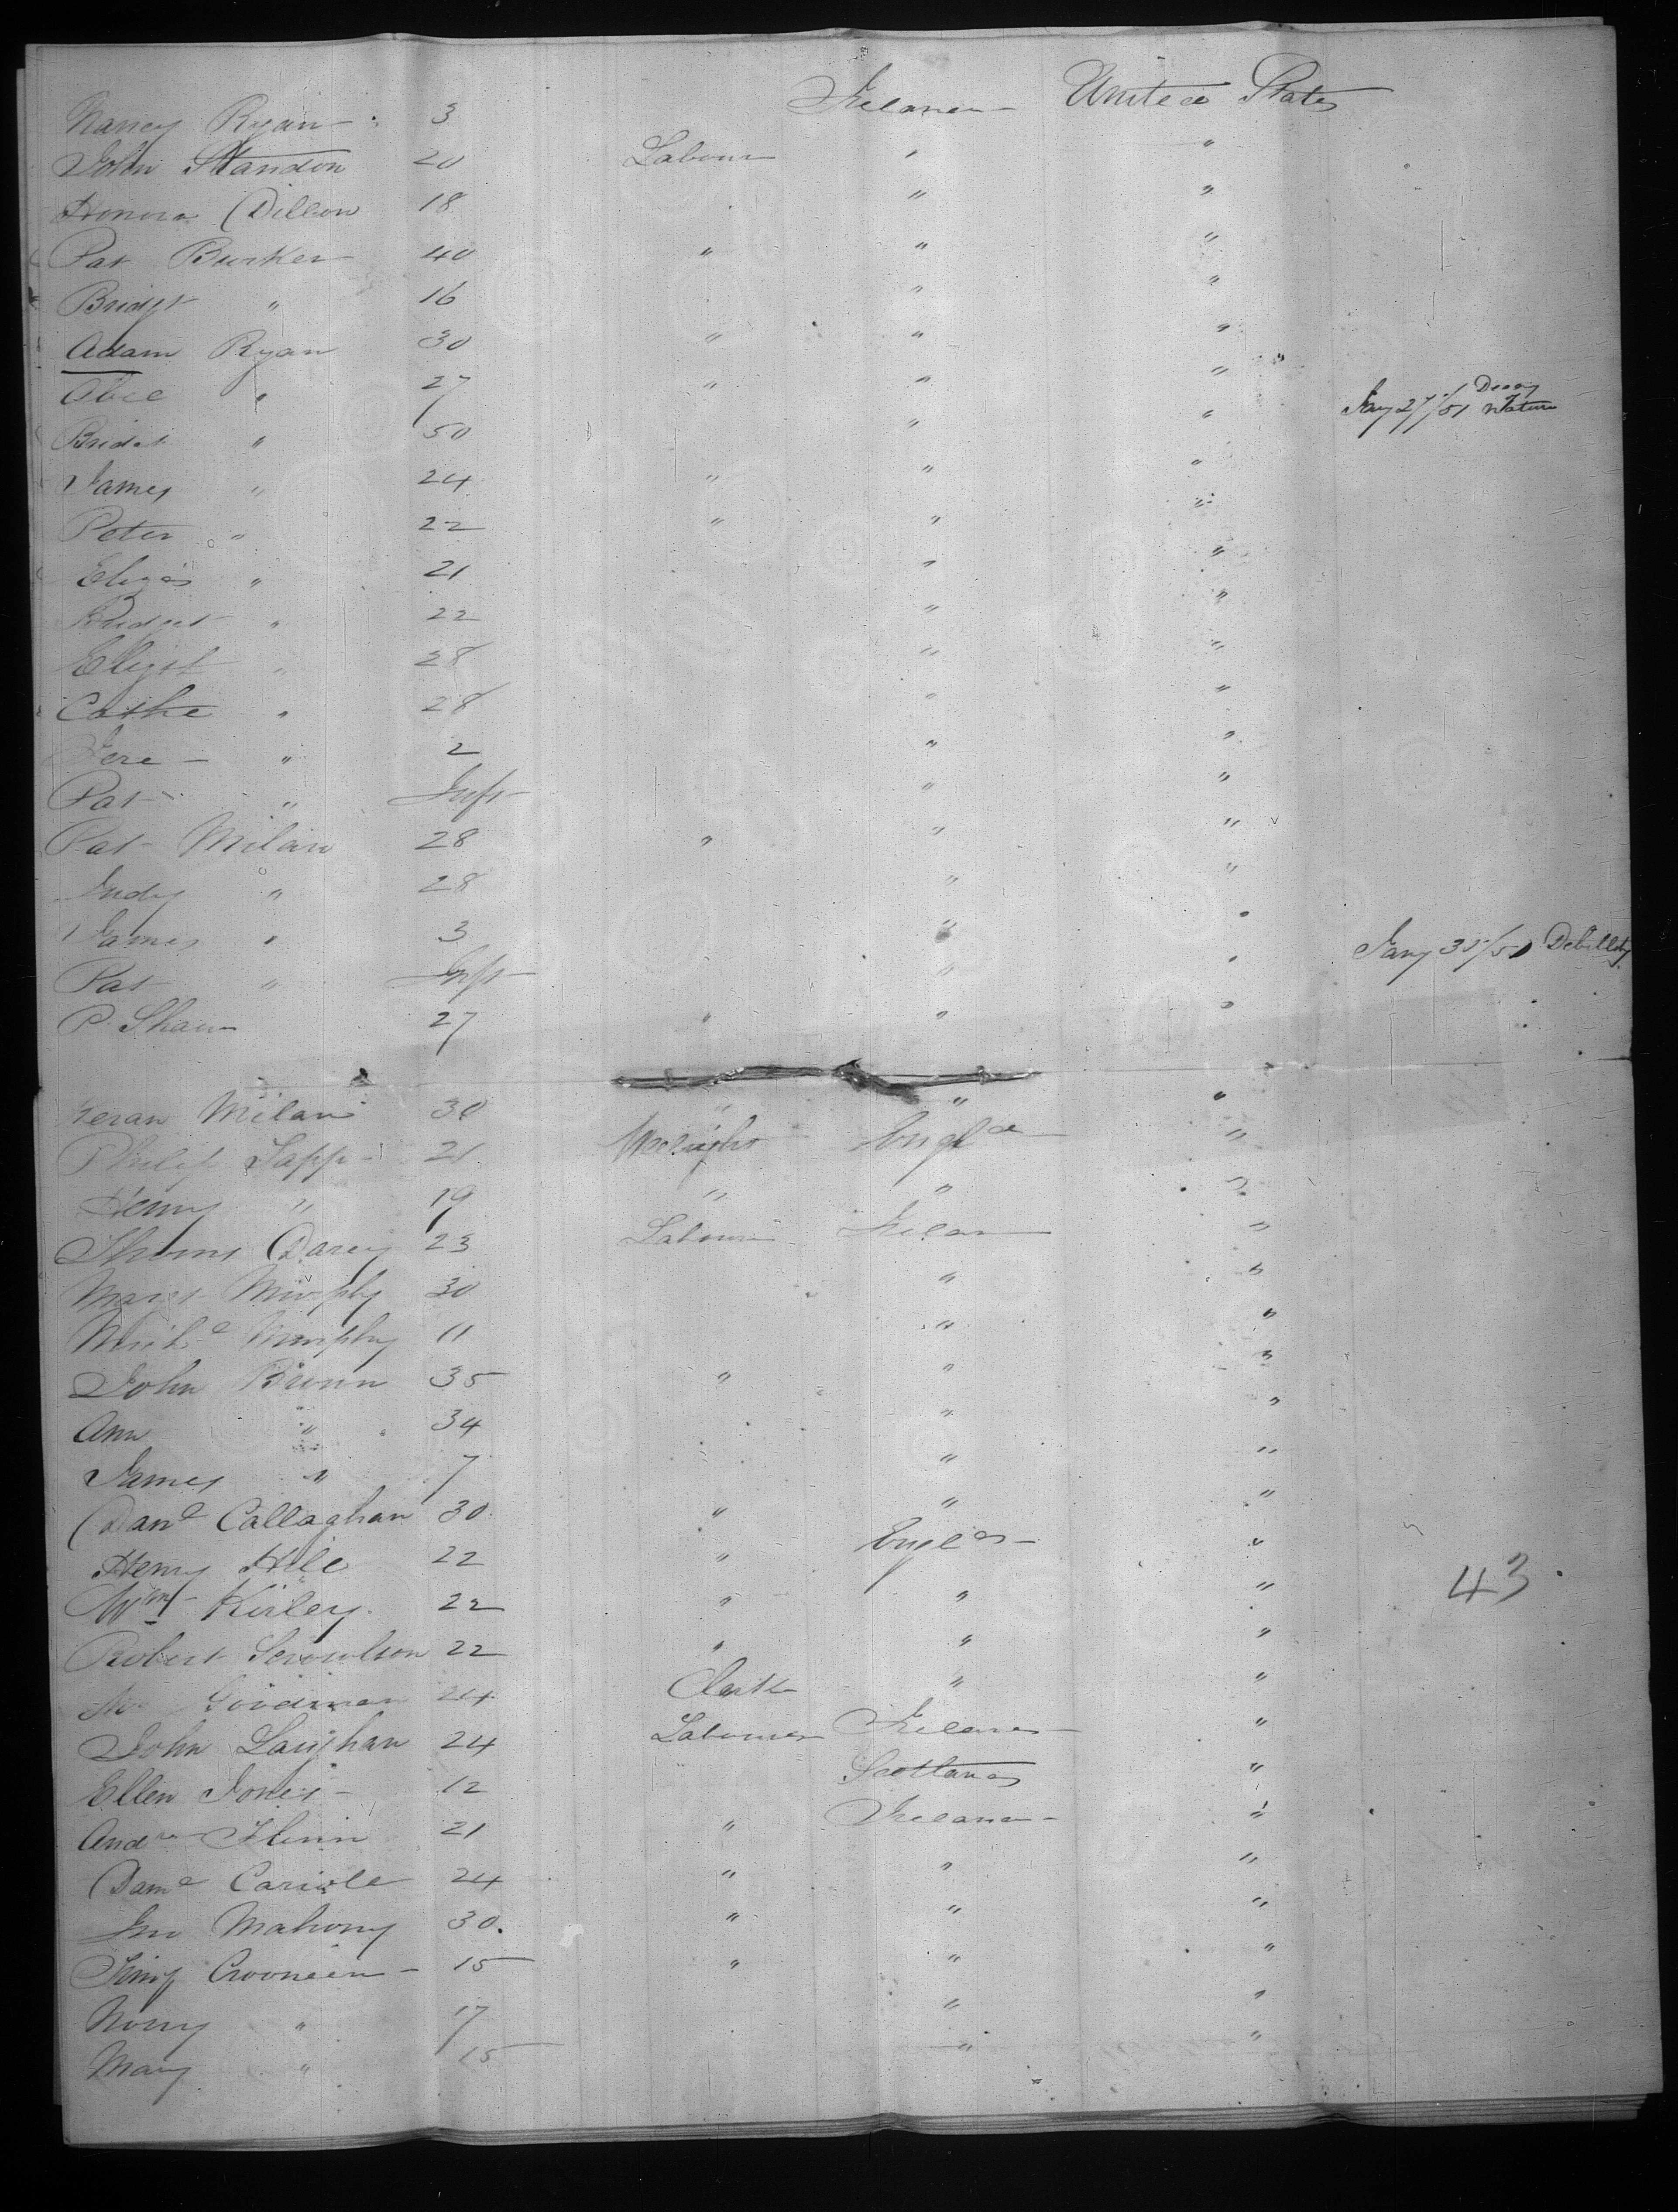 Nancy Ryan 3 Ireland United States
John Standon 20 Labour " "
Honora Dillon 18 " "
Pat Burke 40 " " "
Bridgt " 16 " "
Adam Ryan 30 " " "
" 27 " " " Jany 27/51 Decay Nature
Bridgt " 50 " "
James " 24 " " "
Peter " 22 " " "
Eliza " 21 " "
Bridget " 22 " "
Elizst " 28 " "
Cathe " 28 " "
Jere " 2 " "
Pat " Inft " "
Pat Milan 28 " " "
Judy " 28 " "
James " 3 " "
Pat " Inft " " Jany 31/51 Debility
P. Shaw 27 " " "
Keran Milan 30 " " "
Philip Lapp 21 Engld "
Henry " 19 " " "
Thoms Darcy 23 Labour Irelan "
Margt Murphy 30 " "
Michl Murphy 11 " "
John Brown 35 " " "
Ann " 34 " "
James " 7 " "
Danl Callaghan 30 " " "
Henry Hile 22 " Engld "
Wm Kirley 22 " " " 43
Robert 22 " " "
Goodman 24 Clerk " "
John Laughan 24 Labourer Ireland "
Ellen Jones 12 Scotland "
Andw Flinn 21 " Ireland "
Danl 24 " " "
Jno Mahony 30. " " "
Crooneen 15 " " "
Norry " 17 " "
Mary " 15 " "